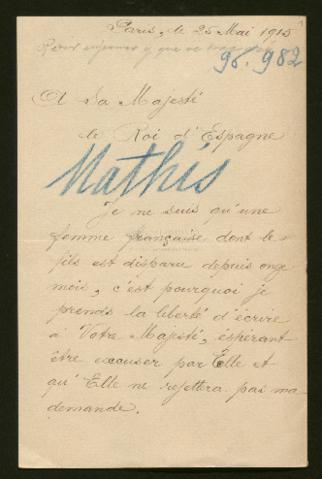 Paris, le 25 Mai 1915
96.982
A Sa Majesté
le Roi d'Espagne
Mathis
Je ne suis qu'une
femme française dont le
fils est disparu depuis onze
mois, c'est pourquoi je
prends la liberté d'écrire
à Votre Majesté, éspérant
être excuser par Elle et
qu'Elle ne rejettera pas ma
demande.